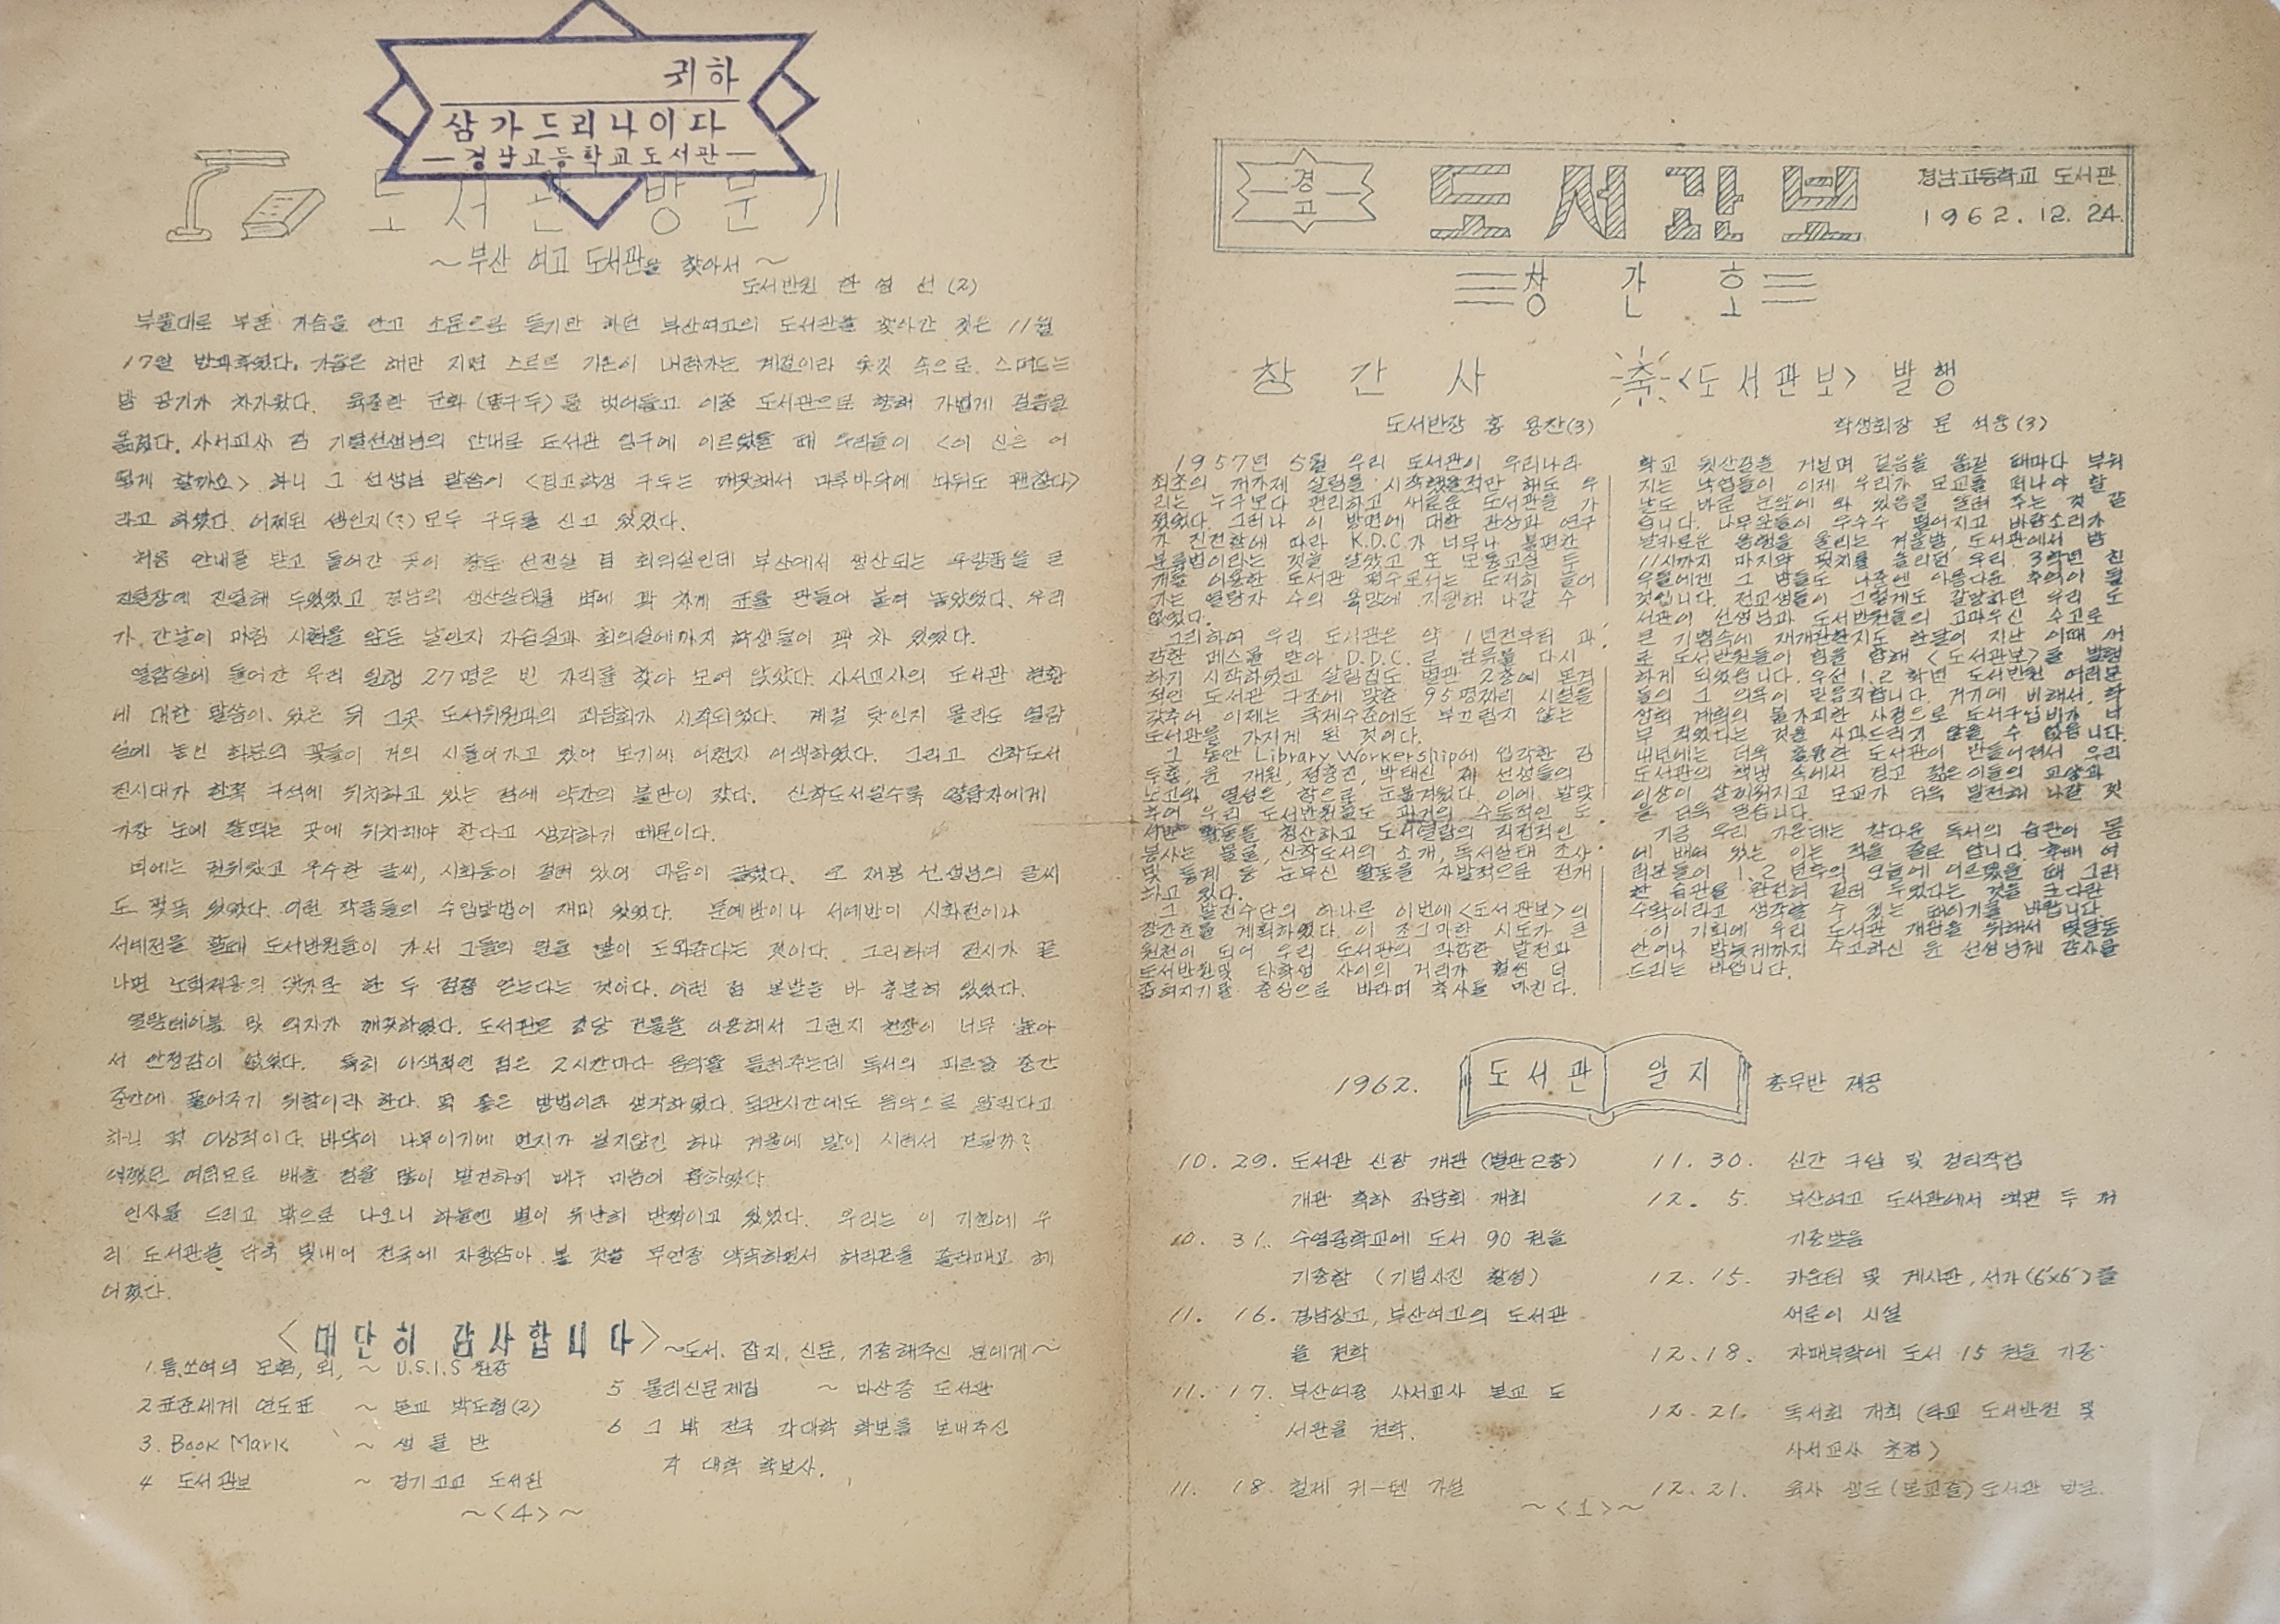 귀하
삼가드리나이다
—경남고등학교도서관—
도서관 방문기
~부산 여고 도서관을 찾아서~
도서반원 한 성 선 (2)
부풀대로 부푼 가슴을 안고 소문으로 듣기만 하던 부산여고의 도서관을 찾아간 것은 11월
17일 방과후였다. 가을은 해만 지면 기온이 내려가는 계절이라 옷깃 속으로 스며드는
밤 공기가 차가왔다. 육중한 군화 (명구두)를 벗어들고 이층 도서관으로 향해 가볍게 걸음을
옮겼다. 사서교사 김 기열선생님의 안내로 도서관 입구에 이르렀을 때 우리들이 <이 신은 어
떻게 할까요> 하니 그 선생님 말씀이 <경고학생 구두는 깨끗해서 마루바닥에 놔둬도 괜찮다>
라고 하였다. 어찌된 셈인지(?) 모두 구두를 신고 있었다.
처음 안내를 받고 들어간 곳이 향토 선전실 및 회의실인데 부산에서 생산되는 수량품을 큰
진열장에 진열해 두었었고 경남의 생산실태를 벽에 꽉 차게 표를 만들어 붙여 놓았었다. 우리
가 간날이 마침 시험을 앞둔 날인지 자습실과 회의실에까지 학생들이 꽉 차 있었다.
열람실에 들어간 우리 일행 27명은 빈 자리를 찾아 모여 앉았다. 사서교사의 도서관 현황
에 대한 말씀이 있은 뒤 그곳 도서위원과의 좌담회가 시작되었다. 계절 탓인지 몰라도 열람
실에 놓인 화분의 꽃들이 거의 시들어가고 있어 보기에 어쩐지 어색하였다. 그리고 신착도서
진시대가 한쪽 구석에 위치하고 있는 점에 약간의 불만이 갔다. 신착도서일수록 열람자에게
가장 눈에 잘띄는 곳에 위치해야 한다고 생각하기 때문이다.
벽에는 권위있고 우수한 글씨, 시화등이 걸려 있어 마음이 끌렸다. 오 재봉 선생님의 글씨
도 몇폭 있었다. 이런 작품들의 수입방법이 재미 있었다. 문예반이나 서예반이 시화전이나
서예전을 할때 도서반원들이 가서 그들의 일을 많이 도와준다는 것이다. 그리하여 전시가 끝
나면 노력제공의 댓가로 한 두 점쯤 얻는다는 것이다. 이런 점 본받을 바 충분히 있었다.
열람테이블 및 의자가 깨끗하였다. 도서관은 강당 건물을 이용해서 그런지 천장이 너무 높아
서 안정감이 없었다. 특히 이색적인 점은 2시간마다 음악을 들려주는데 독서의 피로를 중간
중간에 풀어주기 위함이라 한다. 퍽 좋은 방법이라 생각하였다. 폐관시간에도 음악으로 알린다고
하니 퍽 이상적이다. 바닥이 나무이기에 먼지가 일지않긴 하나 겨울에 발이 시려서 견딜까?
여하튼 여러모로 배울 점을 많이 발견하여 매우 마음이 흡하였다.
인사를 드리고 밖으로 나오니 하늘엔 별이 유난히 반짝이고 있었다. 우리는 이 기회에 우
리 도서관을 더욱 빛내어 전국에 자랑삼아 볼 것을 무언중 약속하면서 허리끈을 졸라매고 헤
어졌다.
<대단히 감사합니다> ~도서. 잡지. 신문, 기증해주신 분에게~
1. 톰쏘여의 모험, 외, ~ U.S.I.S 원장
2 표준세계 연도표 ~ 본교 박도형(2)
3. Book Mark ~ 생 물 반
4 도서관보 ~ 경기고교 도서관
5 물리신문제집 ~ 마산중 도서관
6 그 밖 전국 각대학 학보를 보내주신
각 대학 학보사.
~<4>~
경고
도서관보
경남고등학교 도서관
1962. 12. 24.
창 간 호
창 간 사
도서반장 홍 용찬(3)
1957년 5월 우리 도서관이 우리나라
최초의 개가제 살림을 시작했을적만 해도 우
리는 누구보다 편리하고 새로운 도서관을 가
졌었다. 그러나 이 방면에 대한 관심과 연구
가 진전함에 따라 K.D.C.가 너무나 불편한
분류법이라는 것을 알았고 또 보통교실 두
개를 이용한 도서관 평수로서는 도저히 늘어
가는 열람자 수의 욕망에 지탱해 나갈 수
없었다.
그리하여 우리 도서관은 약 1년전부터 과
감한 메스를 받아 D.D.C.로 분류를 다시
하기 시작하였고 살림집도 별관 2층에 본격
적인 도서관 구조에 맞춘 95평짜리 시설을
갖추어 이제는 국제수준에도 부끄럽지 않는
도서관을 가지게 된 것이다.
그 동안 Library Workership에 입각한 김
두홍, 윤 개원, 정흥진, 박태신 제 선생들의
노고와 열성은 참으로 눈물겨웠다. 이에 발맞
추어 우리 도서반원들도 과거의 수동적인 도
서반 활동을 청산하고 도서열람의 직접적인
봉사는 물론, 신착도서의 소개, 독서실태 조사
및 통계 등 눈부신 활동을 자발적으로 전개
하고 있다.
그 발전수단의 하나로 이번에 <도서관보>의
창간호를 계획하였다. 이 조그마한 시도가 큰
원천이 되어 우리 도서관의 과감한 발전과
도서반원및 타학생 사이의 거리가 훨씬 더
좁혀지기를 충심으로 바라며 축사를 마친다.
축 <도서관보> 발행
학생회장 문 석웅(3)
학교 뒷산길을 거닐며 걸음을 옮길 때마다 부쉬
지는 낙엽들이 이제 우리가 모교를 떠나야 할
날도 바로 눈앞에 와 있음을 알려 주는 것 같
습니다. 나무잎들이 우수수 떨어지고 바람소리가
날카로운 음향을 울리는 겨울밤, 도서관에서 밤
11시까지 마지막 핏치를 올리던 우리 3학년 친
우들에겐 그 밤들도 나중엔 아름다운 추억이 될
것입니다. 전교생들이 그렇게도 갈망하던 우리 도
서관이 선생님과 도서반원들의 고마우신 수고로
큰 기염속에 재개관한지도 한달이 지난 이때 서
로 도서반원들이 힘을 합해 <도서관보>를 발행
하게 되었습니다. 우선 1.2 학년 도서반원 여러분
들의 그 의욕이 믿음직합니다. 거기에 비해서, 학
생회 계획의 불가피한 사정으로 도서구입비가 너
무 적었다는 것을 사과드리지 않을 수 없읍니다.
내년에는 더욱 훌륭한 도서관이 만들어져서 우리
도서관의 책냄 속에서 경고 젊은이들의 교양과
이상이 살찌워지고 모교가 더욱 발전해 나갈 것
을 더욱 믿습니다.
지금 우리 가운데는 참다운 독서의 습관이 몸
에 배여 있는 이는 적을 줄로 압니다. 후배 여
러분들이 1.2 년후의 오늘에 이르렀을 때 그러
한 습관을 완전히 길러 두었다는 것을 크다란
수확이라고 생각할 수 있는 때이기를 바랍니다.
이 기회에 우리 도서관 개관을 위해서 몇달동
안이나 밤늦게까지 수고하신 윤 선생님께 감사를
드리는 바입니다.
1962. 도서관 일지 총무반 제공
10. 29. 도서관 신장 개관 (별관2층)
개관 축하 좌담회 개최
10. 31. 수영중학교에 도서 90 권을
기증함 (기념사진 촬영)
11. 16. 경남상고, 부산여고의 도서관
을 견학
11. 17. 부산여중 사서교사 본교 도
서관을 견학.
11. 18. 철제 카—텐 가설
11. 30. 신간 구입 및 정리작업
12. 5. 부산여고 도서관에서 액편 두 개
기증받음
12. 15. 카운터 및 게시판, 서가(6'x6')를
새로이 시설
12. 18. 자매부락에 도서 15 권을 기증
12. 21. 독서회 개최 (타교 도서반원 및
사서교사 초청)
12. 21. 육사 생도(본교졸)도서관 방문.
~<1>~